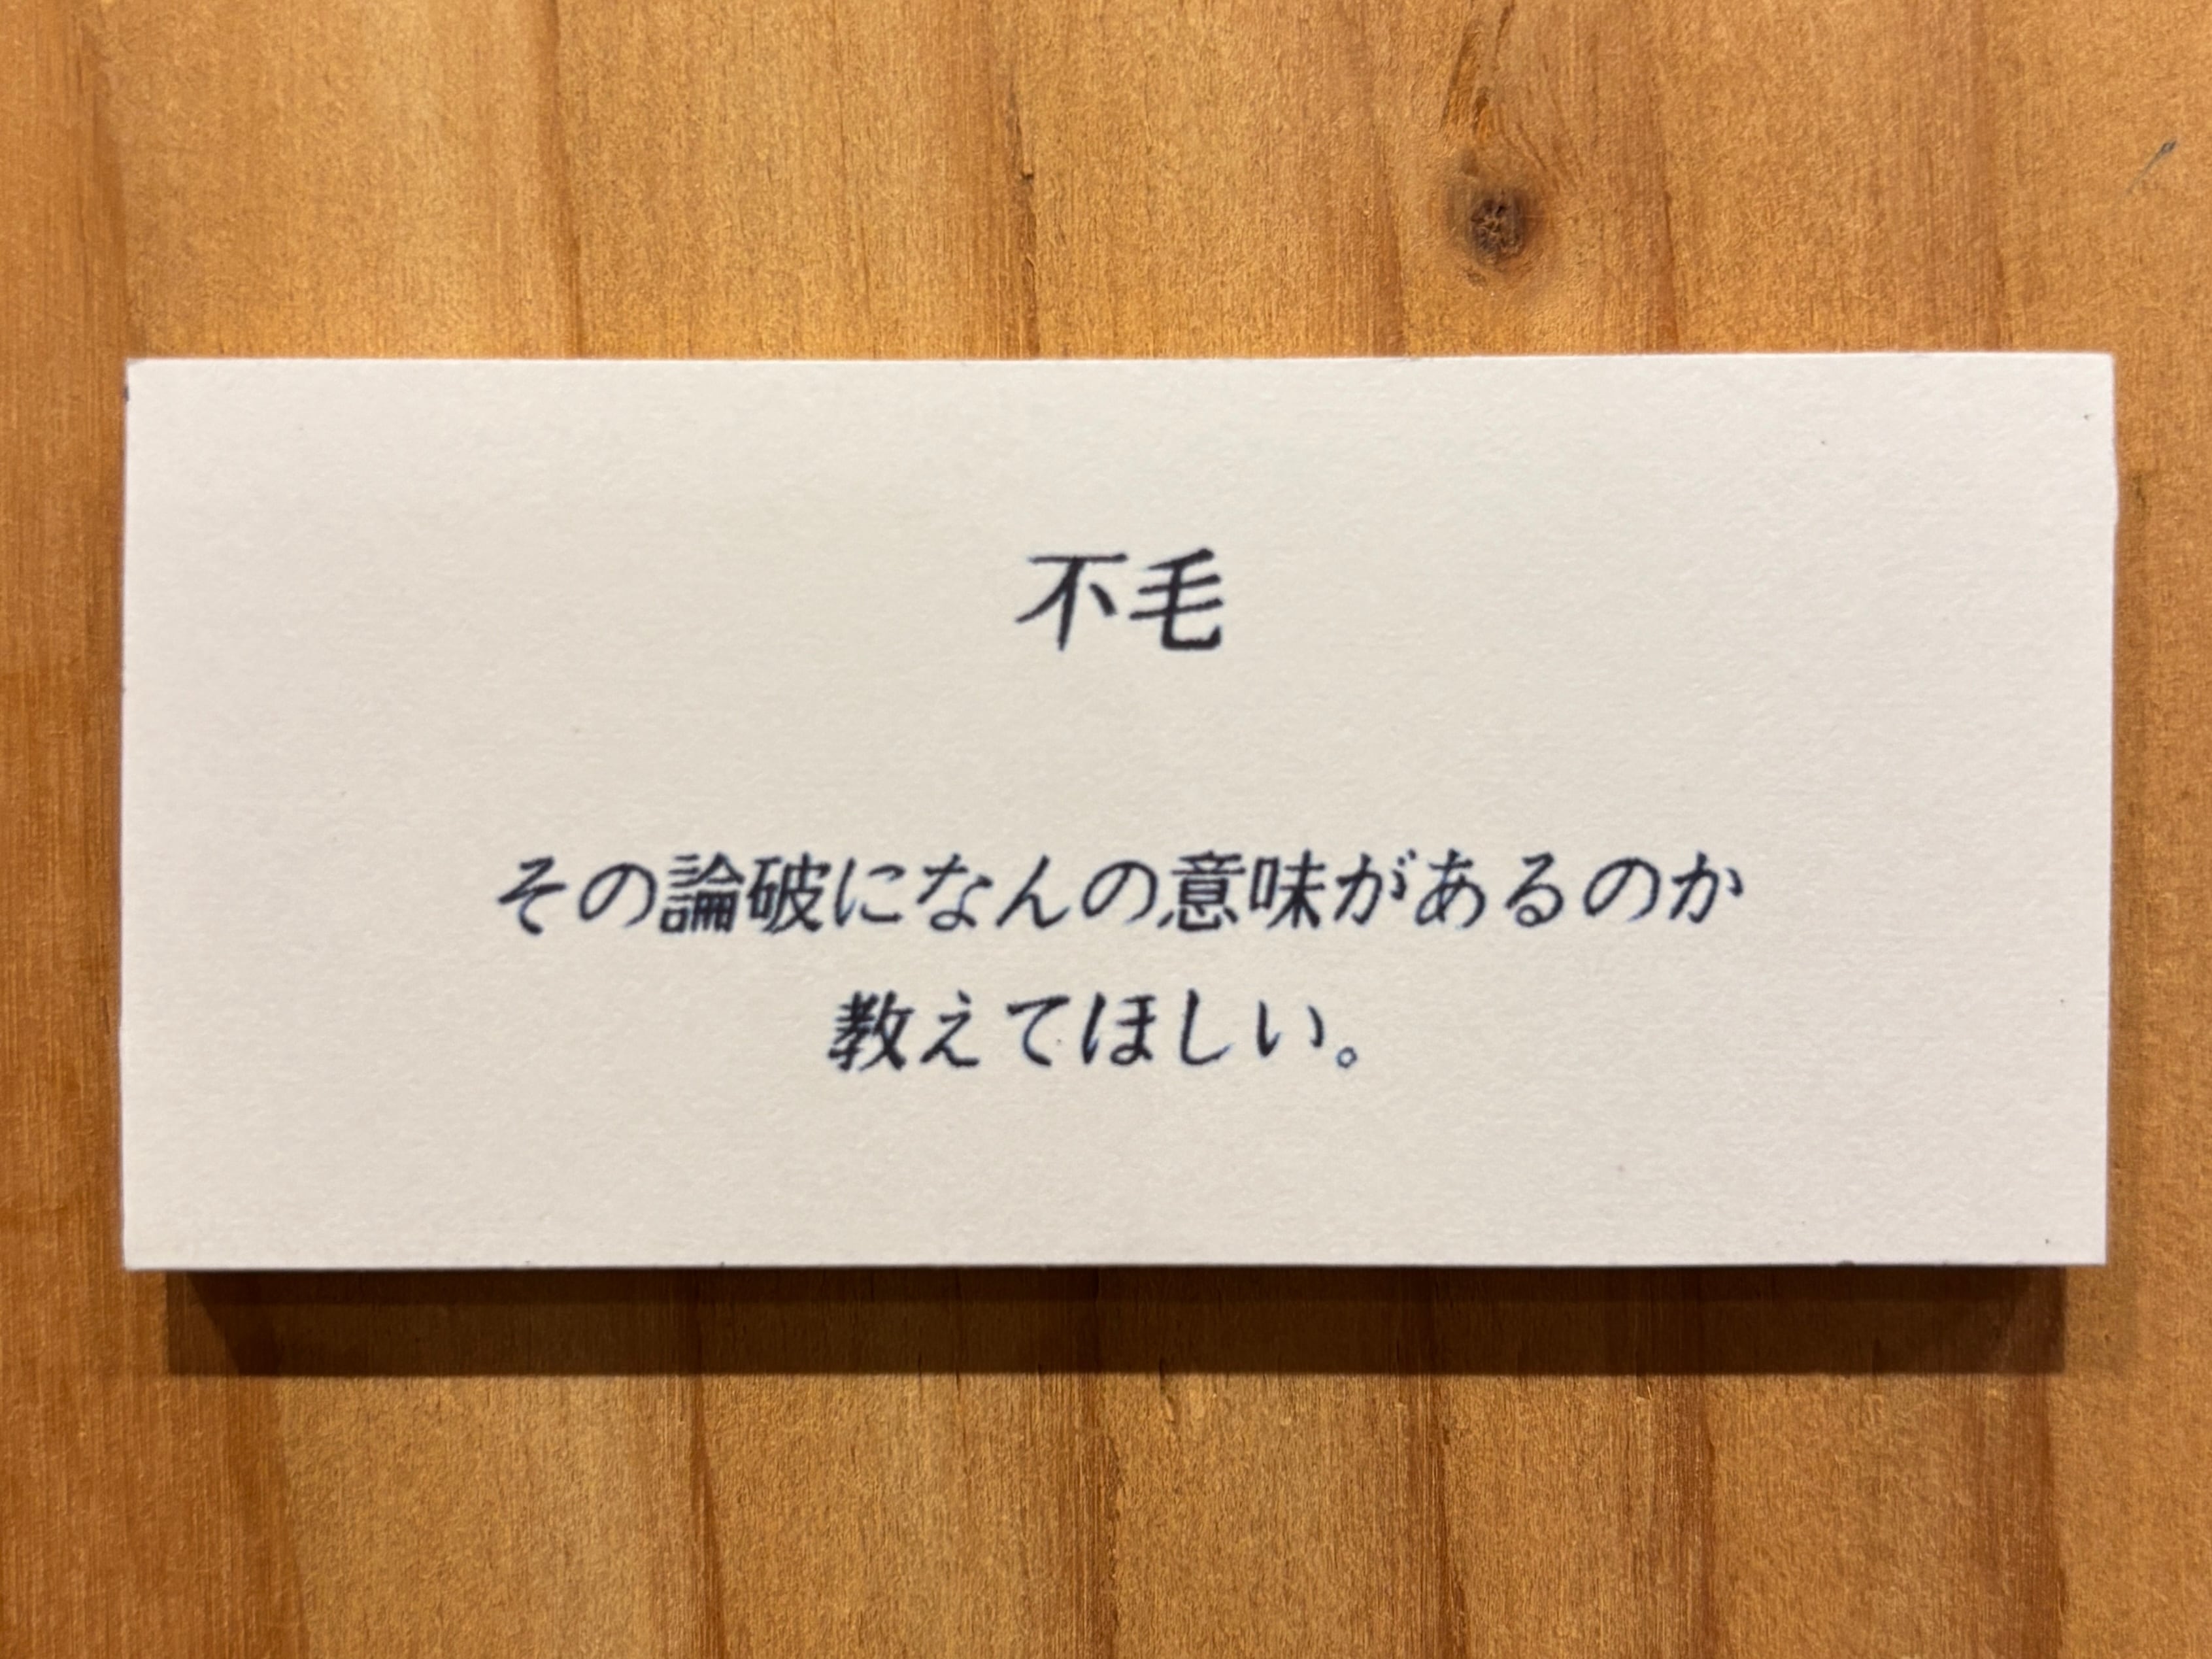 不毛
その論破になんの意味があるのか
教えてほしい。